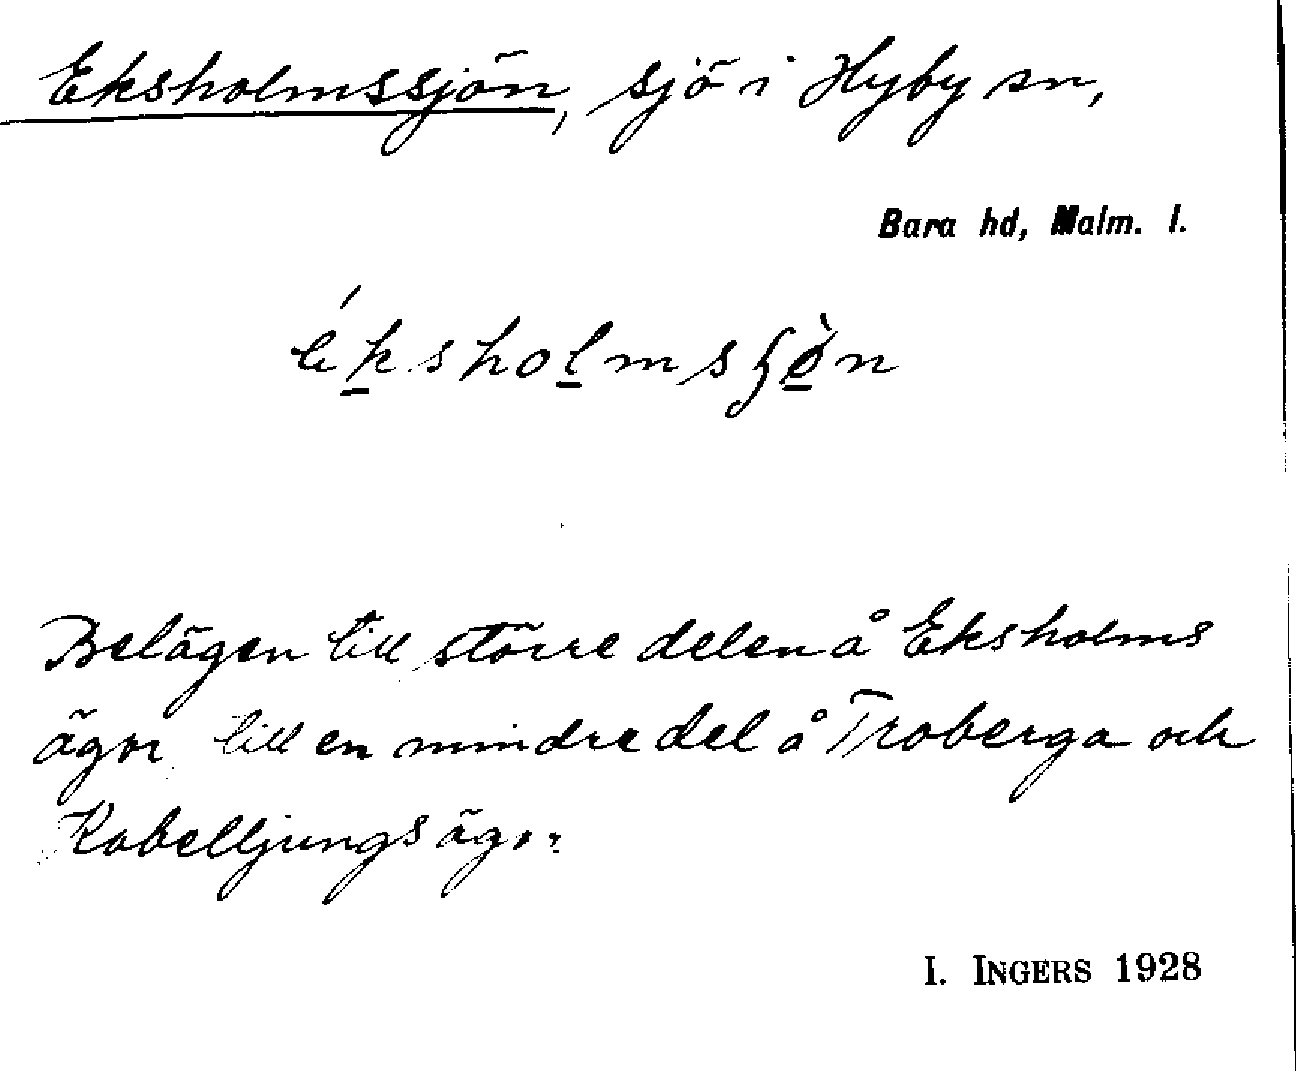 Eksholmssjön, sjö i Hyby sn,
Bara hd, Malm. l.
Belägen till större delen å Eksholms
ägor till en mindre del å Troberga och
Kabelljungs ägor.
I. INGERS 1928